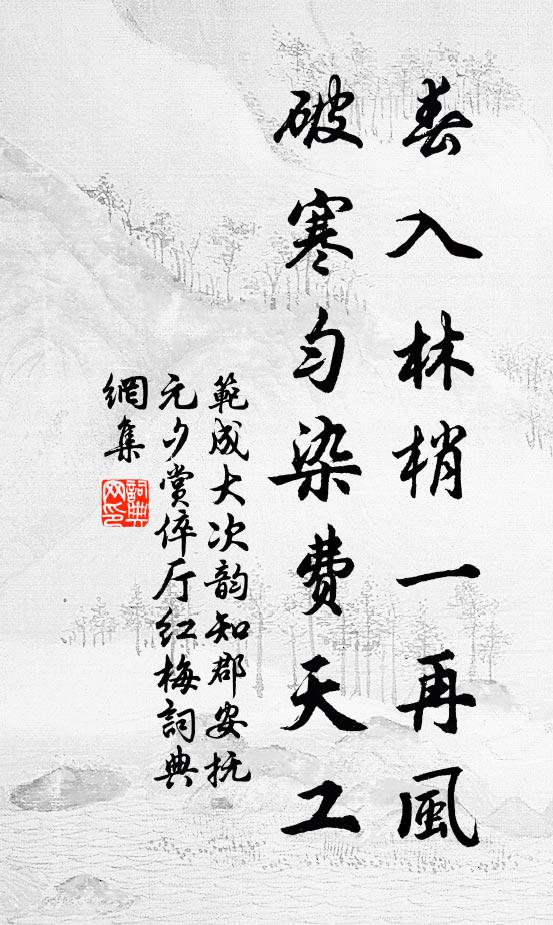 春入林梢一再風
破寒勻染費天工
範成大次韵知郡安抚
元夕赏倅厅红梅詞典
網集
詞典
网印